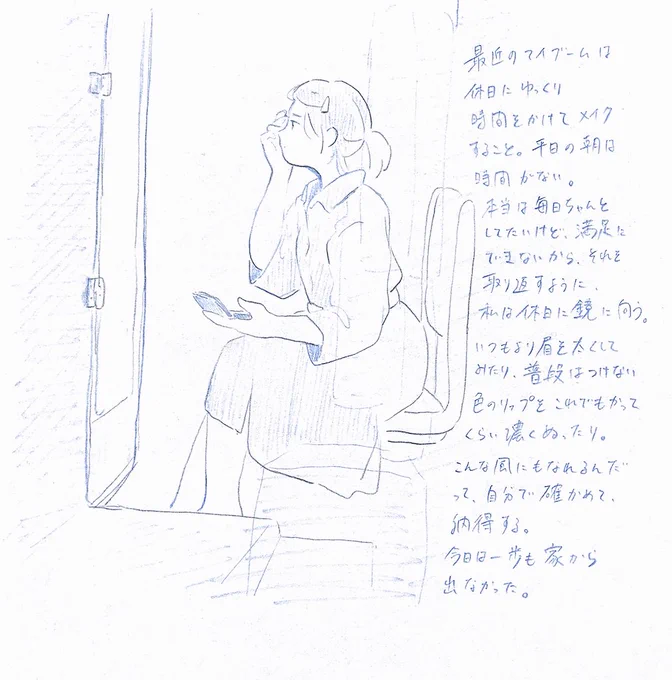 最近のマイブームは
休日にゆっくり
時間をかけてメイク
すること。平日の朝は
時間がない。
本当は毎日ちゃんと
してたいけど、満足に
できないから、それを
取り返すように、
私は休日に鏡に向う。
いつもより眉を太くして
みたり、普段はつけない
色のリップをこれでもかって
くらい濃くぬったり。
こんな風にもなれるんだ
って、自分で確かめて、
納得する。
今日は一歩も家から
出なかった。